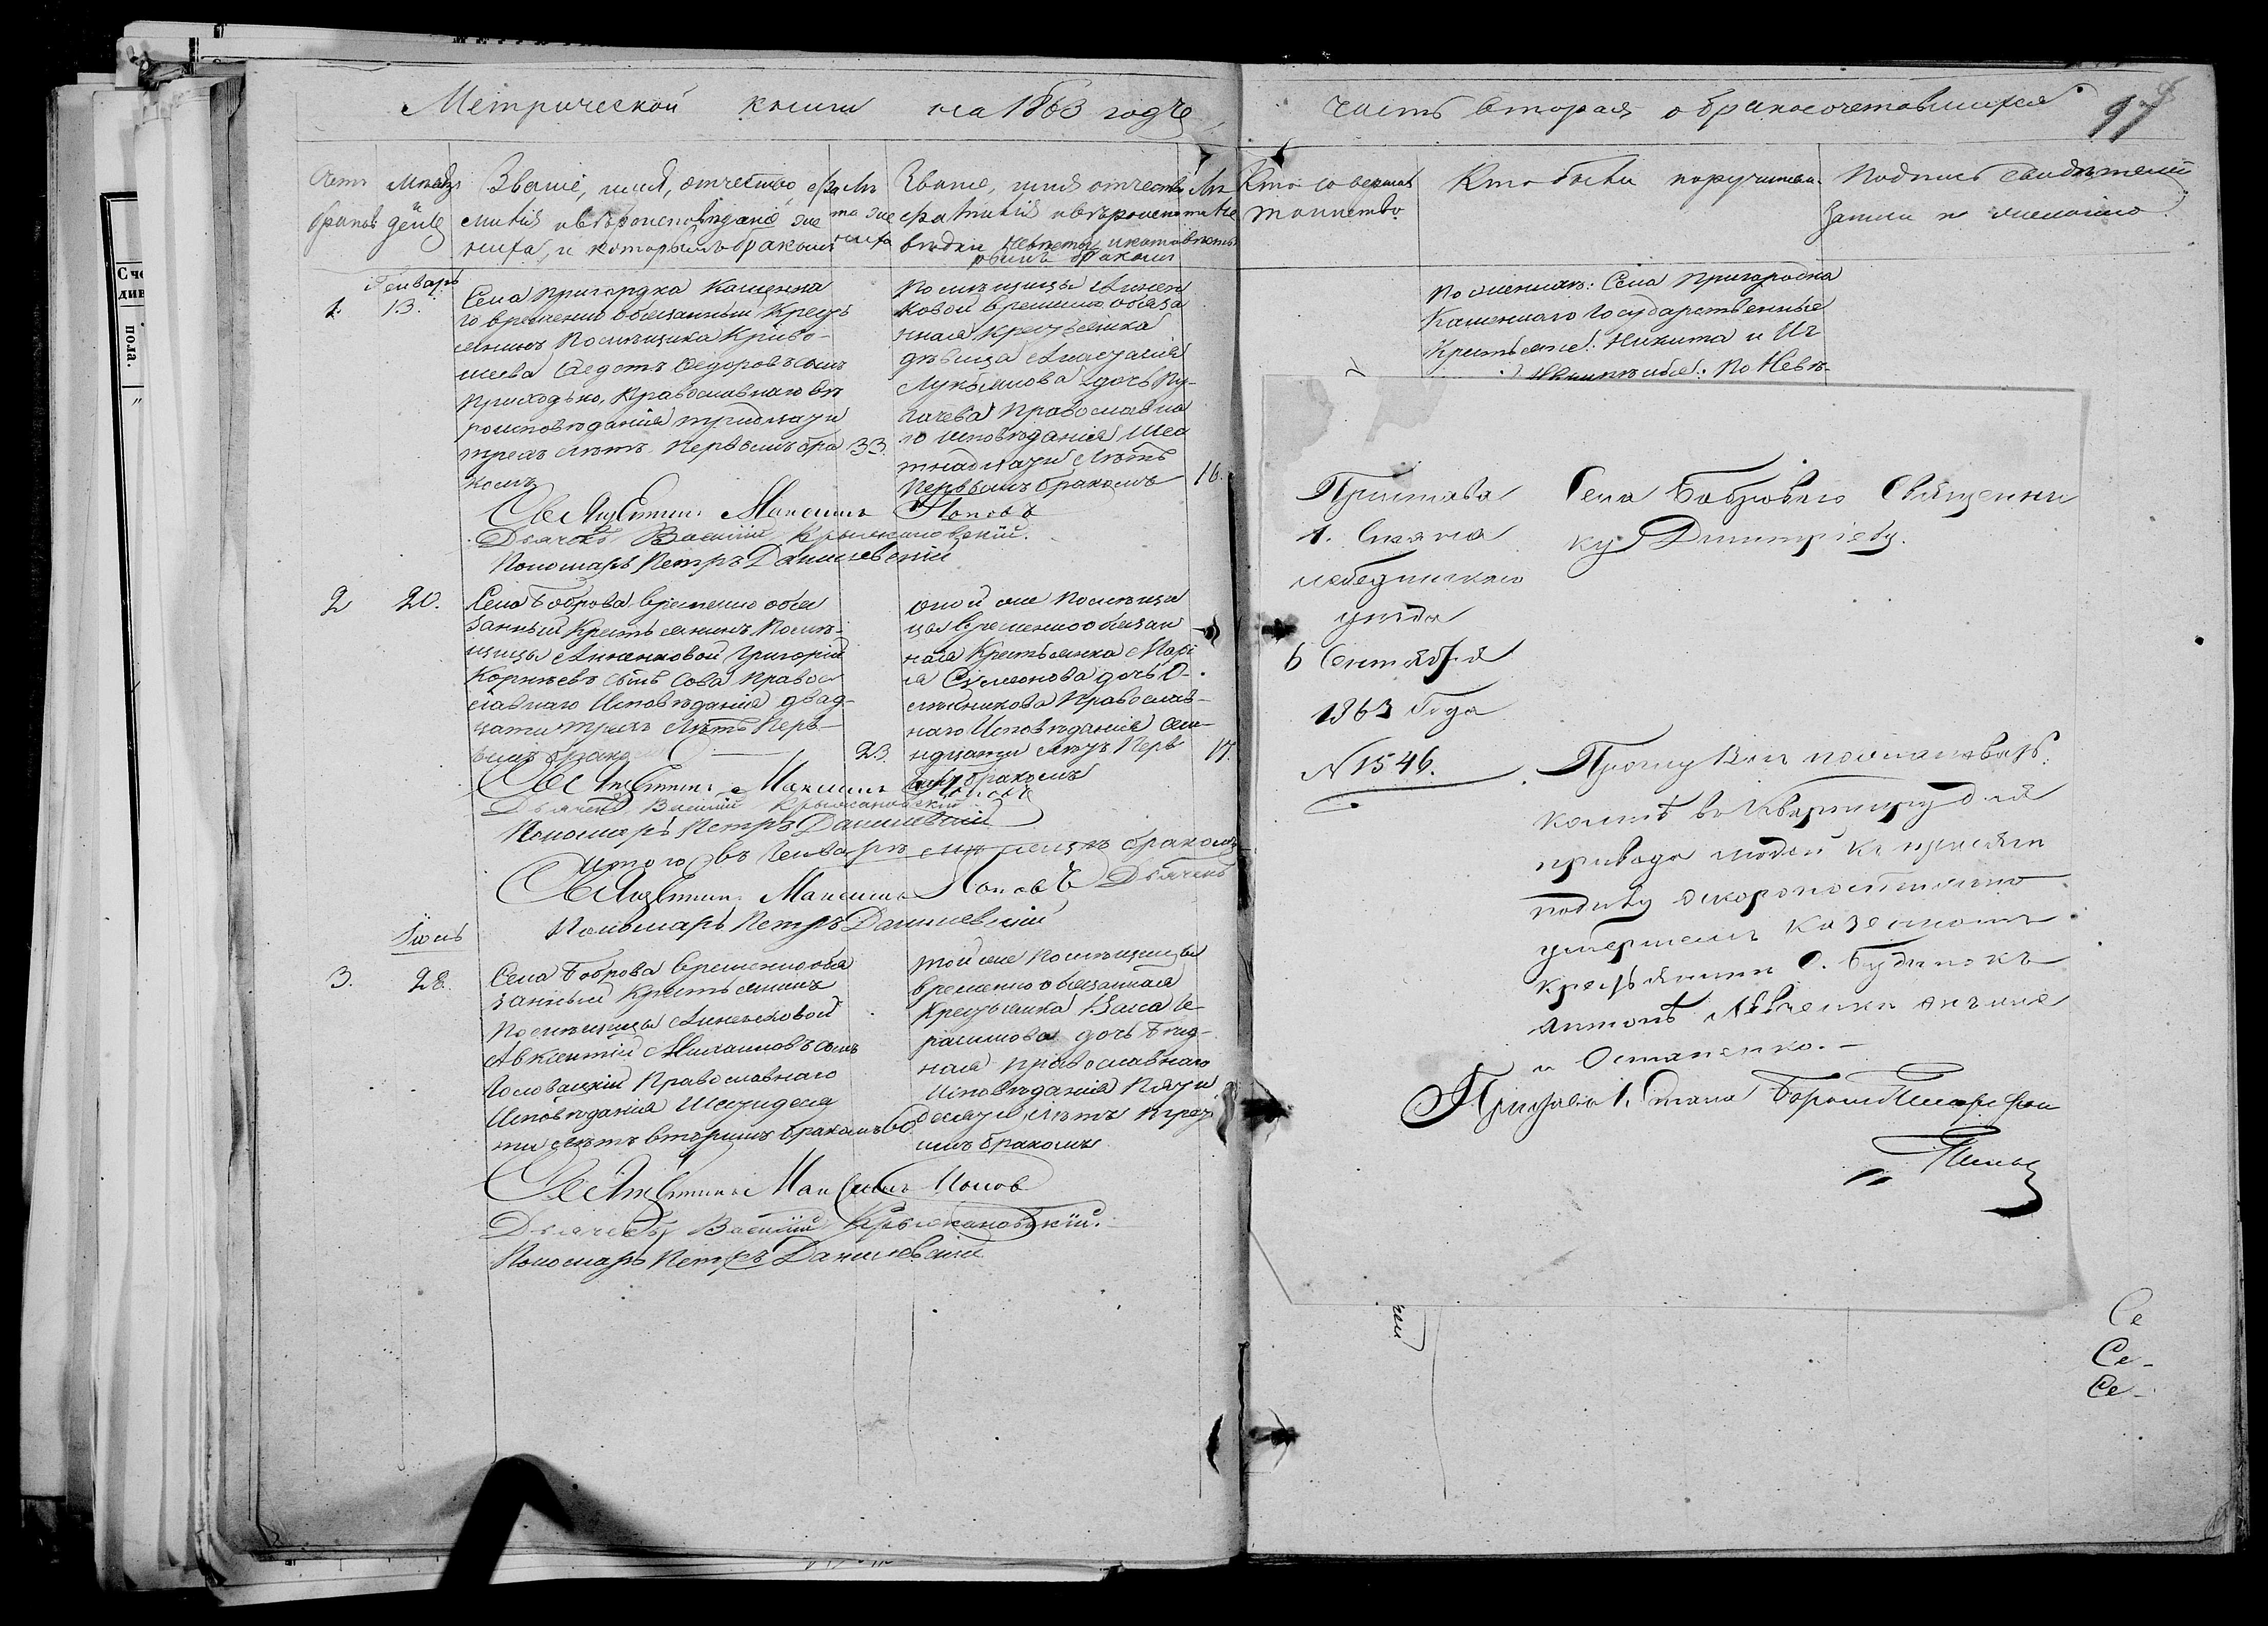 Метрической книги на 1863 годъ
часть вторая о бракосочетавшихся
97
Счетъ браковъ
Мѣсяцъ и день
Званіе, имя, отчество, фа
милія и вѣроисповѣданіе же
ниха, и которымъ бракомъ
Лѣ
та же
ниха
Званіе, имя отчество
фамилія и вѣроиспо
вѣданіе невѣсты и кото
рымъ бракомъ
Лѣ
та не
вѣсты
Кто совершалъ
таинство
Кто были поручители
Подпись свидѣтелей
записи по желанію
Генварь
1.
13.
Села Пригородка Каменна
го временно обязанный Кресть
янинъ Помѣщика Криво-
шеева Федотъ Федоровъ сынъ
Приходько, Православнаго вѣ
роисповѣданія тридцати
трехъ лѣтъ Первымъ бра
комъ
33.
Помѣщицы Аннен
ковой временно обяза
нная Крестьянка
дѣвица Анастасія
Лукьянова дочь Пу-
гачева Православна
го Исповѣданія Шес
тнадцати лѣтъ
Первымъ бракомъ
16.
Священникъ Максимъ Поповъ
Дьячекъ Василій Крыжановскій.
Пономарь Петръ Данилевскій
По женихѣ: Села Пригородка
Каменнаго Государственные
Крестьяне: Никита и
По Невѣ-
2
20.
Села Боброва временно обя
занный Крестьянинъ Помѣ-
щицы Анненковой Григорій
Корнѣевъ сынъ Сова Правос
лавнаго Исповѣданія двад-
цати трехъ лѣтъ Пер-
вымъ бракомъ
23.
оной же Помѣщи
цы временно обязан
ная Крестьянка Марі
я Симеонова дочь
Православ-
наго Исповѣданія Сем-
надцати лѣтъ Перв
ымъ бракомъ
17.
Священникъ Максимъ Поповъ
Дьячекъ Василій Крыжановскій
Пономарь Петръ Данилевскій
Итого въ Генварѣ мѣсяцѣ браковъ
Священникъ Максимъ Поповъ Дьячекъ
Пономарь Петръ Данилевскій
3.
28.
Села Боброва временно обя
занный Крестьянинъ
Помѣщицы Анненковой
Авксентій Михаиловъ сынъ
Православнаго
Исповѣданія Шестидеся
ти лѣтъ вторымъ бракомъ
60
той же Помѣщицы
временно обязанная
Крестьянка Васса Ге
расимова дочь Бѣд-
ная Православнаго
Исповѣданія Пяти
десяти лѣтъ Треть
имъ бракомъ
Священникъ Максимъ Поповъ
Дьячекъ Василій Крыжановскій.
Пономарь Петръ Данилевскій
Пристава
1. Стана
Лебединскаго
уѣзда
6 Сентября
1863 Года
№ 1546.
Села Боброваго Священни
ку Димитріеву.
Прошу Васъ
въ Квартиру для
привода людей къ присягѣ
поводу скоропостижно
умершемъ Казенномъ
Крестьянинѣ С. Будилокъ
и Остапенко.
Приставъ 1. Стана
Се
Се-
Се-
Счетъ
див
пола.